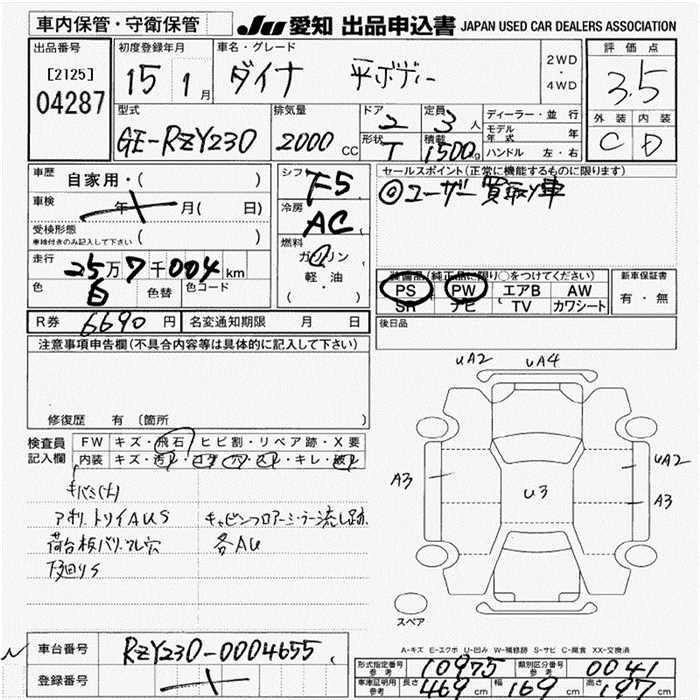 車内保管・守衛保管
JU 愛知 出品申込書 JAPAN USED CAR DEALERS ASSOCIATION
出品番号
[2125]
04287
初度登録年月
15 1月
車名・グレード
ダイナ 平ボディー
2WD
・
4WD
評価点
3.5
外装 内装
C D
型式
GE-RZY230
排気量
2000 CC
ドア 2
形状 T
定員 3人
積載 1500kg
ディーラー・並行
モデル年式 年
ハンドル 左・右
車歴 自家用・( )
車検 年 月( 日)
受検形態
車検付きのみ記入して下さい ( )
走行 25万7千004km
色 白 色替 色コード
シフト F5
冷房 AC
燃料
ガソリン
軽・油
( )
セールスポイント(正常に機能するものに限ります)
◎ユーザー買取り車
装備品(純正品に限り○をつけてください)
PS PW エアB AW
SR ナビ TV カワシート
新車保証書
有・無
R券 6690円 名変通知期限 月 日
後日品
注意事項申告欄(不具合内容等は具体的に記入して下さい)
修復歴 有 〔箇所 〕
検査員記入欄
FW キズ・飛石・ヒビ割・リペア跡・X要
内装 キズ・汚れ・コゲ・穴・スレ・キレ・破れ
アオリ、トリイAUS
キャビンフロアーシーラー流し跡
各AU
下回りS
uA2 uA4
A3
U3
uA2
A3
スペア
A-キズ E-エクボ U-凹み W-補修跡 S-サビ C-腐食 XX-交換済
車台番号 RZY230-0004655
登録番号
形式指定番号 参考 10975
類別区分番号 参考 0041
車庫証明用 参考 長さ 469cm 幅 169cm 高さ 197cm